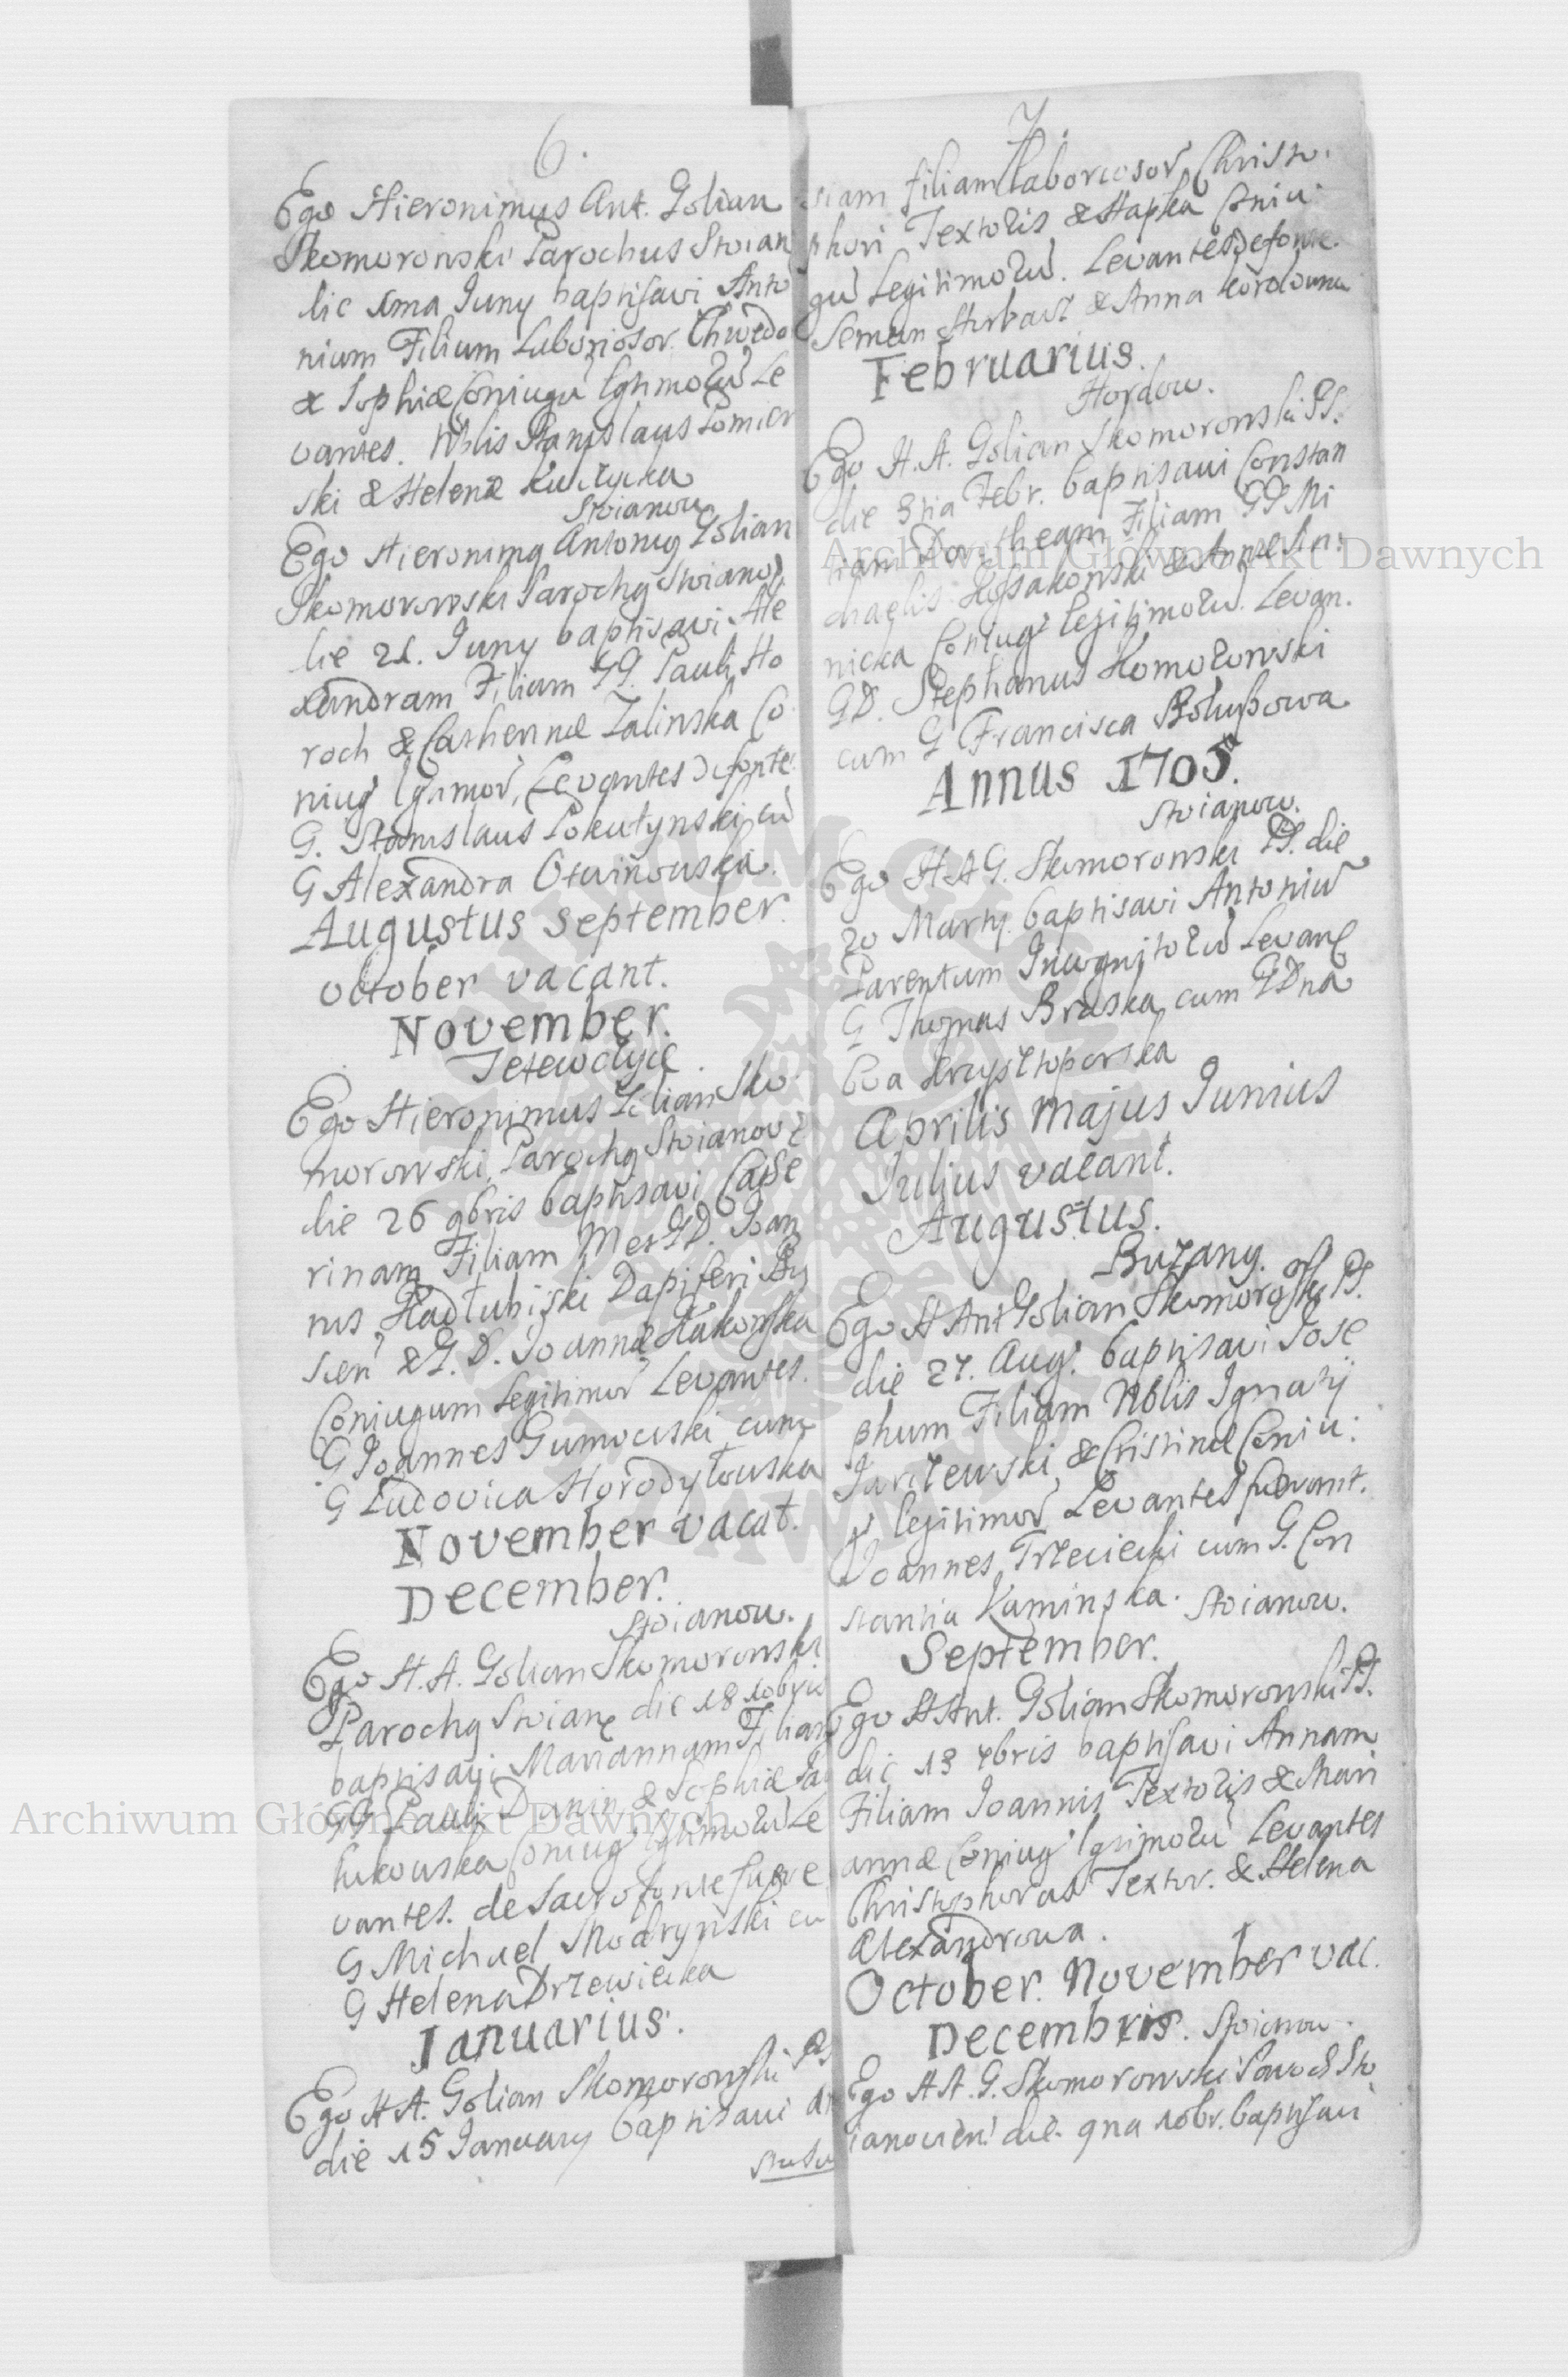 6.
Ego Hieronimus Ant. Golian
Skomorowski Parochus Stoian
die 1ma Juny baptisavi Anto
nium Filium Laboriosor. Chwedo
& Sophiæ Coniugũ lgtimorũ Le
vantes. Nblis Stanislaus Pomier
ski & Helena Kulczycka
Stoianow
Ego Hieronimq Antoniq Golian
Skomorowski Parochq Stoianov
die 21. Juny baptisavi Ale
xandram Filiam GG. Pauli Ho
roch & Catherinæ Zalinska Co
niug lgtimor, Levantes de fonte
G. Stanislaus Pokutynski cũ
G Alexandra Otwinowska.
Augustus September.
October vacant.
November.
Tetewczyce.
Ego Hieronimus Golian Sko
morowski, Parochq Stoianov
die 26 9bris baptisavi Cathe
rinam Filiam M et GD. Joan
nis Kadłubiski Dapiferi
& G. D. Joannæ
Coniugum legitimor Levantes.
G Joannes Gumowski cum
G Ludovica Horodyłowska
November vacat.
December.
Stoianow.
Ego H. A. Golian Skomorowski
Parochq Stoian die 18 10bris
baptisavi Mariannam Filiam
GG Pauli Dunin & Sophiæ Za
kowska Coniug lgtimorũ Le
vantes. de Sacro fonte fuere
G Michael Modrynski cu
G Helena Drzewiecka
Januarius.
Ego H A. Golian Skomorowski PS
die 15 January baptisavi An
7.
siam filiam Laboriosor Christo.
phori Textoris & Hapka Coniu
gũ Legitimorũ. Levantes de fonte.
Seman & Anna
Februarius.
Hordow.
Ego H. A. Golian Skomorowski PS.
die 3tia Febr. baptisavi Constan
tiam Dorotheam Filiam GG Mi
chaelis & Annæ
nicka Coniug legitimorũ. Levan.
GD. Stephanus Komorowski
cum G Francisca Bohuszowa
Annus 1705.
Stoianow.
Ego H A G. Skomorowski PS. die
20 Martij baptisavi Antoniũ
Parentum Incognitorũ Levan
G Thomas Braska cum GDna
Eva Krzysztoporska
Aprilis Majus Junius
Julius vacant.
Augustus.
Buzany.
Ego H Ant Golian Skomorowski PS.
die 27. Aug. baptisavi Jose
phum Filium Nblis Ignatij
Jarczewski & Cristinæ Coniu:
g legitimor Levantes fuerant.
Joannes Trzeciecki cum G. Con
stantia Kaminska. Stoianow.
September.
Ego H Ant. Golian Skomorowski PS.
die 13 7bris baptisavi Annam
Filiam Joannis Textoris & Mari
annæ Coniug lgtimorũ Levantes
Christophorus Textor. & Helena
Alexandrowa.
October. November vac.
Decembris. Stoianow.
Ego H A. G. Skomorowski Paroch Sto
ianovien. die. 9na 10br. baptisavi
Archiwum Główne Akt Dawnych
Archiwum Główne Akt Dawnych